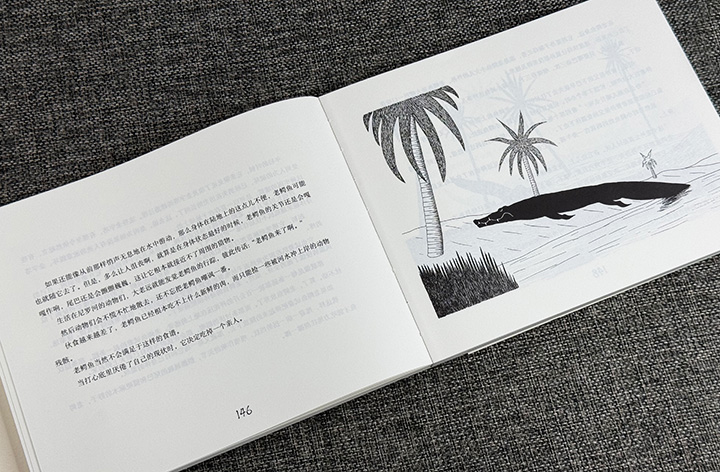 如果还能像从前那样悄声无息地在水中游动，那么身体在陆地上的这点儿不便，老鳄鱼可能
也就随它去了。但是，多么让人沮丧啊，就算是在身体状态最好的时候，老鳄鱼的关节还是会嘎
嘎作响，尾巴还是会颤颤巍巍，这让它根本就接近不了周围的猎物。
生活在尼罗河的动物们，大老远就能发觉老鳄鱼的行踪，彼此传话：“老鳄鱼来了啊。”
然后动物们会不慌不忙地散去，还不忘把老鳄鱼嘲讽一番。
伙食越来越差了，老鳄鱼已经根本吃不上什么新鲜的肉，而只能捡一些被河水冲上岸的动物
残骸。
老鳄鱼当然不会满足于这样的食谱。
当打心底里厌倦了自己的现状时，它决定吃掉一个亲人。
146